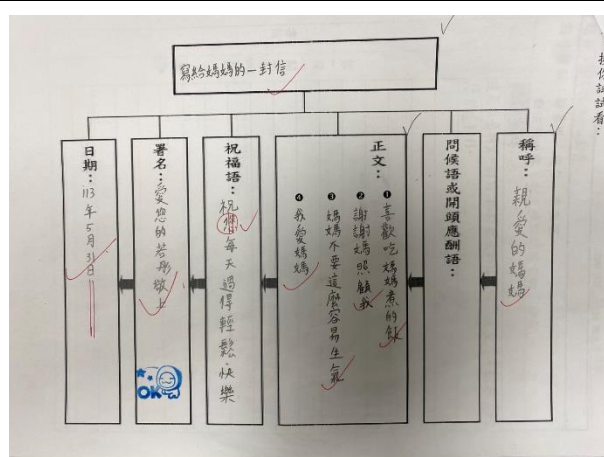 寫給媽媽的一封信
稱呼：親愛的媽媽
問候語或開頭應酬語：
正文：
❶喜歡吃媽媽煮的飯
❷謝謝媽照顧我
❸媽媽不要這麼容易生氣
❹我愛媽媽
祝福語：祝您每天過得輕鬆、快樂
署名：愛您的若彤敬上
日期：113年5月31日
OK